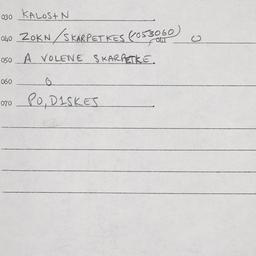 030 KALOS+N
040 ZOKN/SKARPETKES (053060) O
050 A VOLENE SKARPETKE.
060 O
070 PO,D1SKEJ